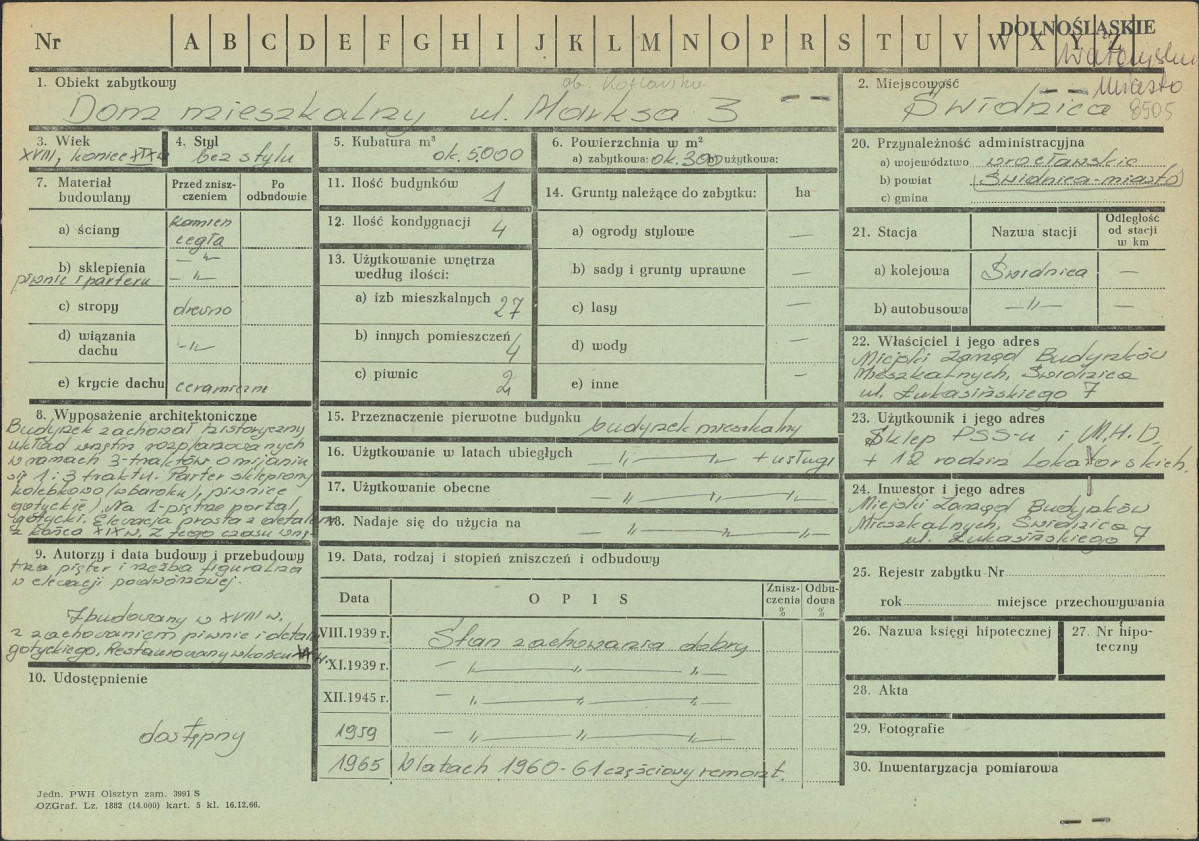 DOLNOŚLĄSKIE
Nr A B C D E F G H I J K L M N O P R S T U V W X Y Z
Miasto
8505
1. Obiekt zabytkowy
Dom mieszkalny ul. Marksa 3
ob. Kotlarska
2. Miejscowość
Świdnica
3. Wiek
XVIII, koniec XIX w
4. Styl
bez stylu
5. Kubatura m³
ok. 5.000
6. Powierzchnia w m²
a) zabytkowa: ok. 300 b) użytkowa:
20. Przynależność administracyjna
a) województwo wrocławskie
b) powiat Świdnica-miasto
c) gmina
7. Materiał budowlany
Przed zniszczeniem
Po odbudowie
a) ściany kamień cegła
b) sklepienia —"—
piwnic i parteru
c) stropy drewno
d) wiązania dachu —"—
e) krycie dachu ceramiczne
11. Ilość budynków 1
12. Ilość kondygnacji 4
13. Użytkowanie wnętrza według ilości:
a) izb mieszkalnych 27
b) innych pomieszczeń 4
c) piwnic 2
14. Grunty należące do zabytku: ha
a) ogrody stylowe —
b) sady i grunty uprawne —
c) lasy —
d) wody —
e) inne —
21. Stacja Nazwa stacji Odległość od stacji w km
a) kolejowa Świdnica —
b) autobusowa —"— —
22. Właściciel i jego adres
Miejski Zarząd Budynków
Mieszkalnych, Świdnica
ul. Łukasińskiego 7
8. Wyposażenie architektoniczne
Budynek zachował historyczny
układ wnętrz rozplanowanych
w ramach 3-traktów, omijaniu
się 1 i 3 traktu. Parter sklepiony
kolebkowo (w baroku), piwnice
gotyckie). Na 1-piętrze portal
gotycki. Elewacja prosta z detalem
z końca XIX w, z tego czasu wnę-
9. Autorzy i data budowy i przebudowy
trza pięter i rzeźba figuralna
w elewacji podwórzowej.
Zbudowany w XVIII w.
z zachowaniem piwnic i detalu
gotyckiego. Restaurowany w końcu XIX w.
10. Udostępnienie
dostępny
15. Przeznaczenie pierwotne budynku budynek mieszkalny
16. Użytkowanie w latach ubiegłych — " — " — + usługi
17. Użytkowanie obecne — " — " —
18. Nadaje się do użycia na — " — " —
19. Data, rodzaj i stopień zniszczeń i odbudowy
Data OPIS Zniszczenia % Odbudowa %
VIII.1939 r. Stan zachowania dobry
XI.1939 r. — " — " —
XII.1945 r. — " — " —
1959 — " — " —
1965 W latach 1960-61 częściowy remont.
23. Użytkownik i jego adres
Sklep PSS-u i M.H.D.
+ 12 rodzin lokatorskich.
24. Inwestor i jego adres
Miejski Zarząd Budynków
Mieszkalnych, Świdnica
ul. Łukasińskiego 7
25. Rejestr zabytku Nr
rok miejsce przechowywania
26. Nazwa księgi hipotecznej
27. Nr hipoteczny
28. Akta
29. Fotografie
30. Inwentaryzacja pomiarowa
Jedn. PWH Olsztyn zam. 3991 S
OZGraf. Lz. 1882 (14.000) kart. 5 kl. 16.12.66.